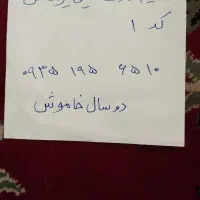 کد ۱
۰۹۳۵ ۱۹۵ ۶۵۱۰
دو سال خاموش